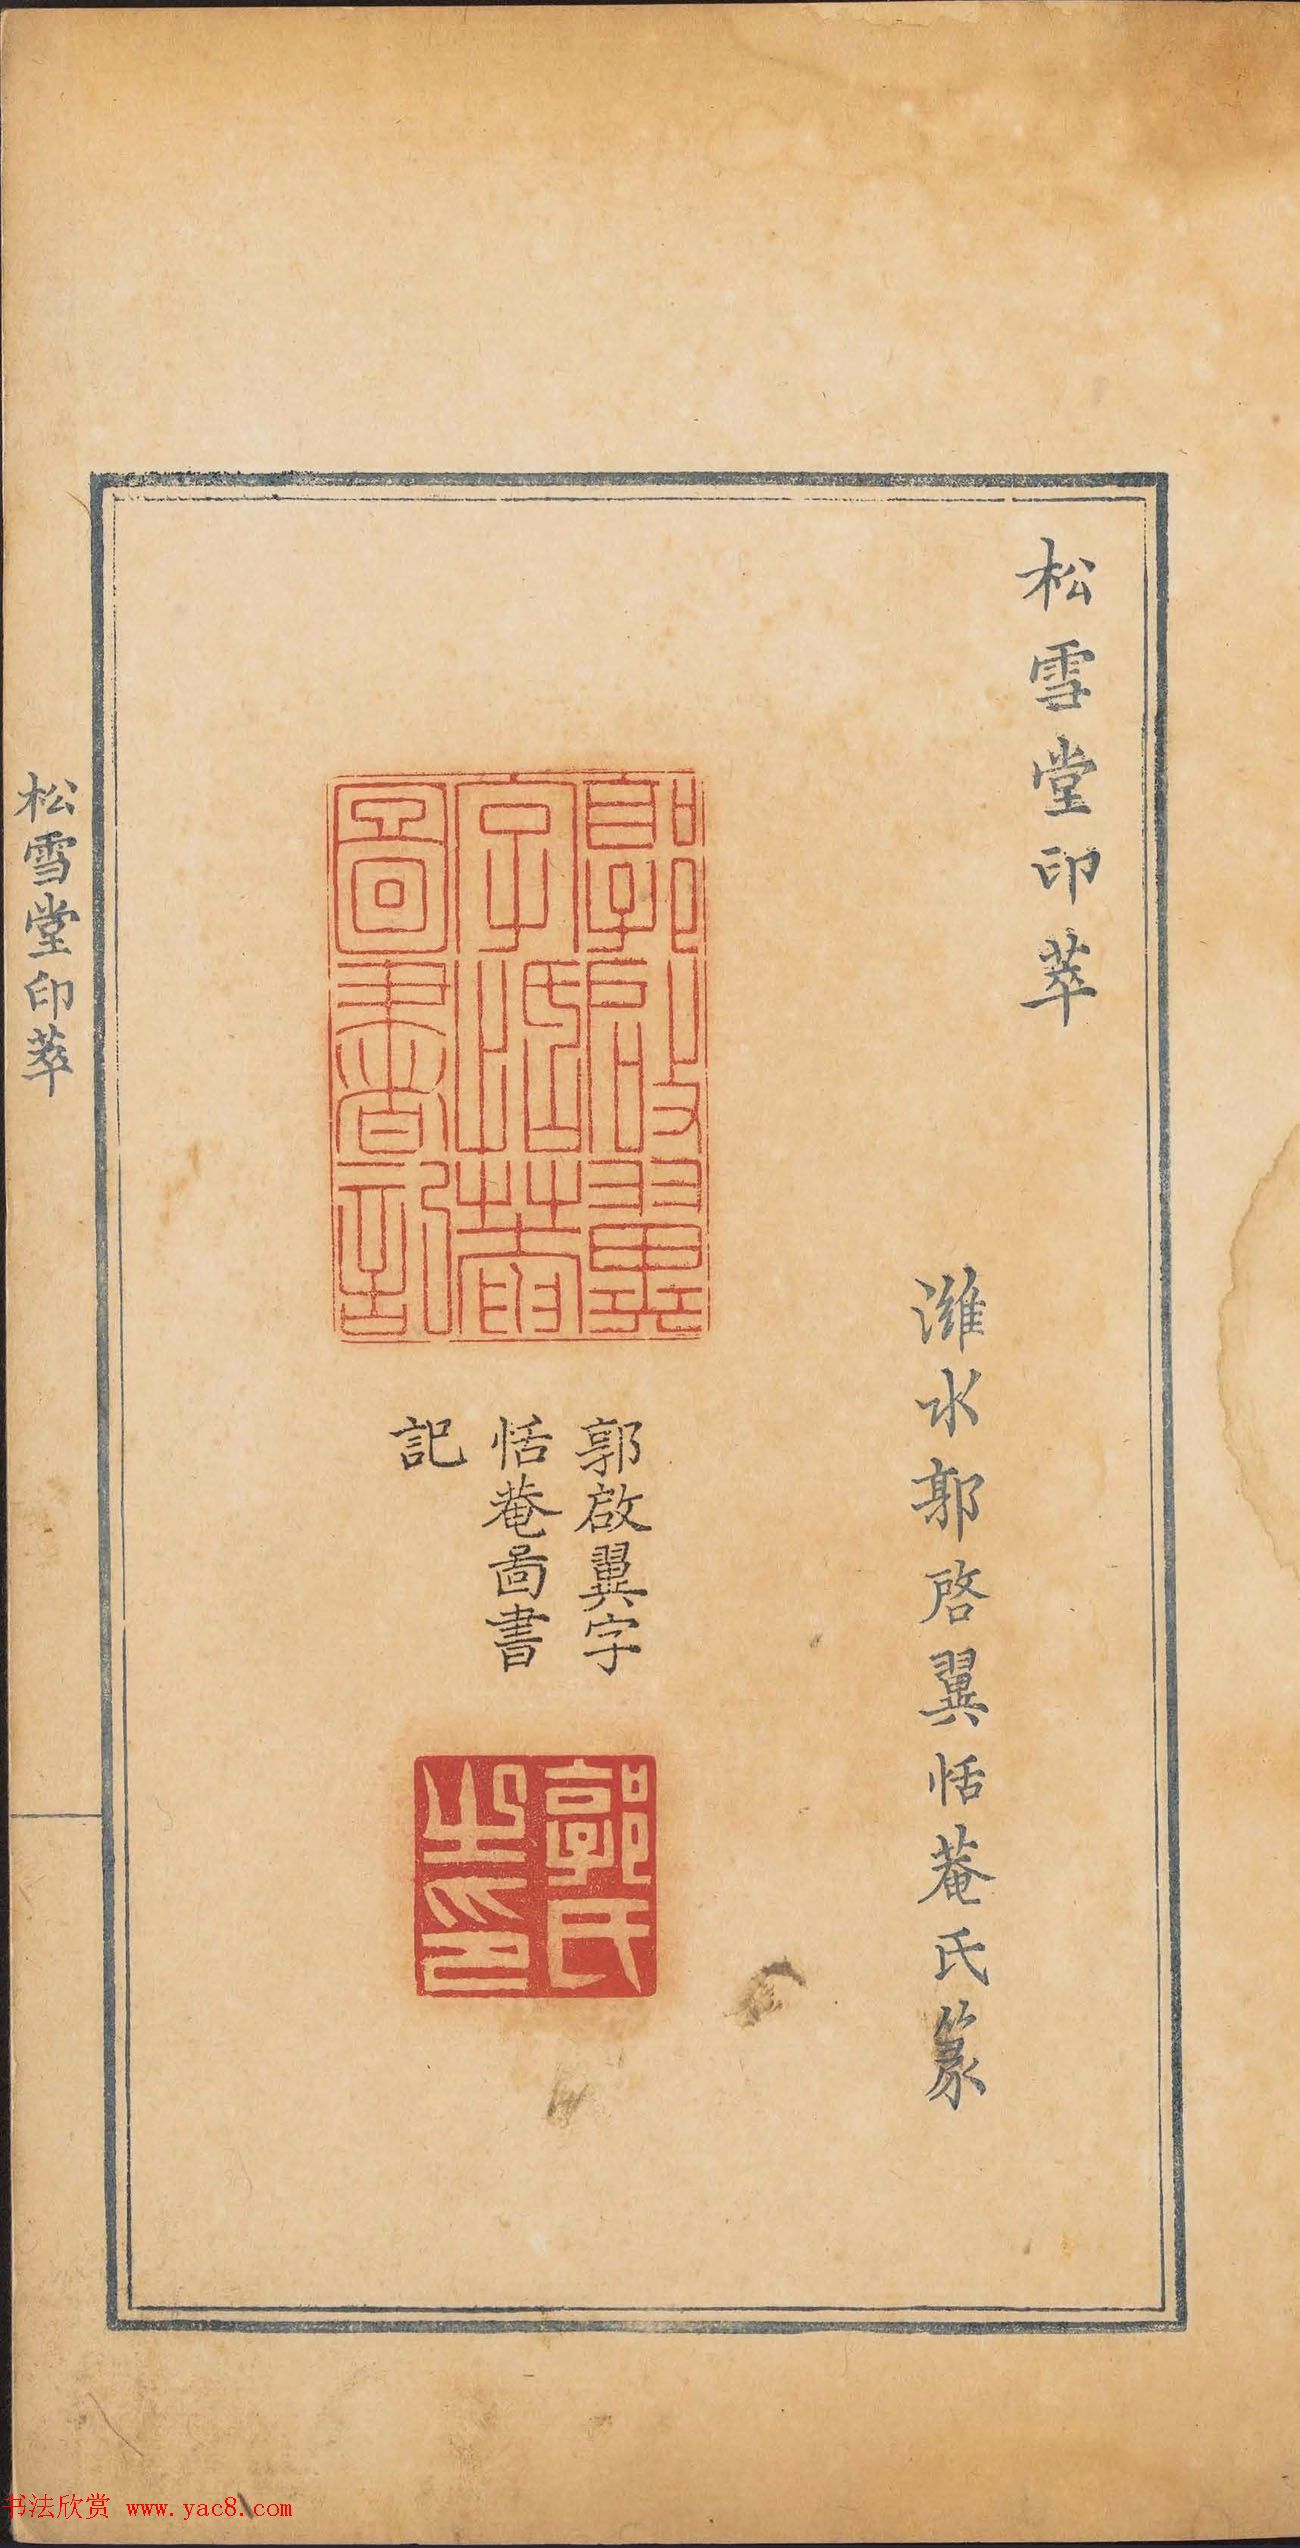 松雪堂印萃
濰水郭啓翼恬菴氏篆
郭啟翼
字恬菴
圖書記
郭啟翼字
恬菴啚書
記
郭氏
之印
松雪堂印萃
书法欣赏 www.yac8.com